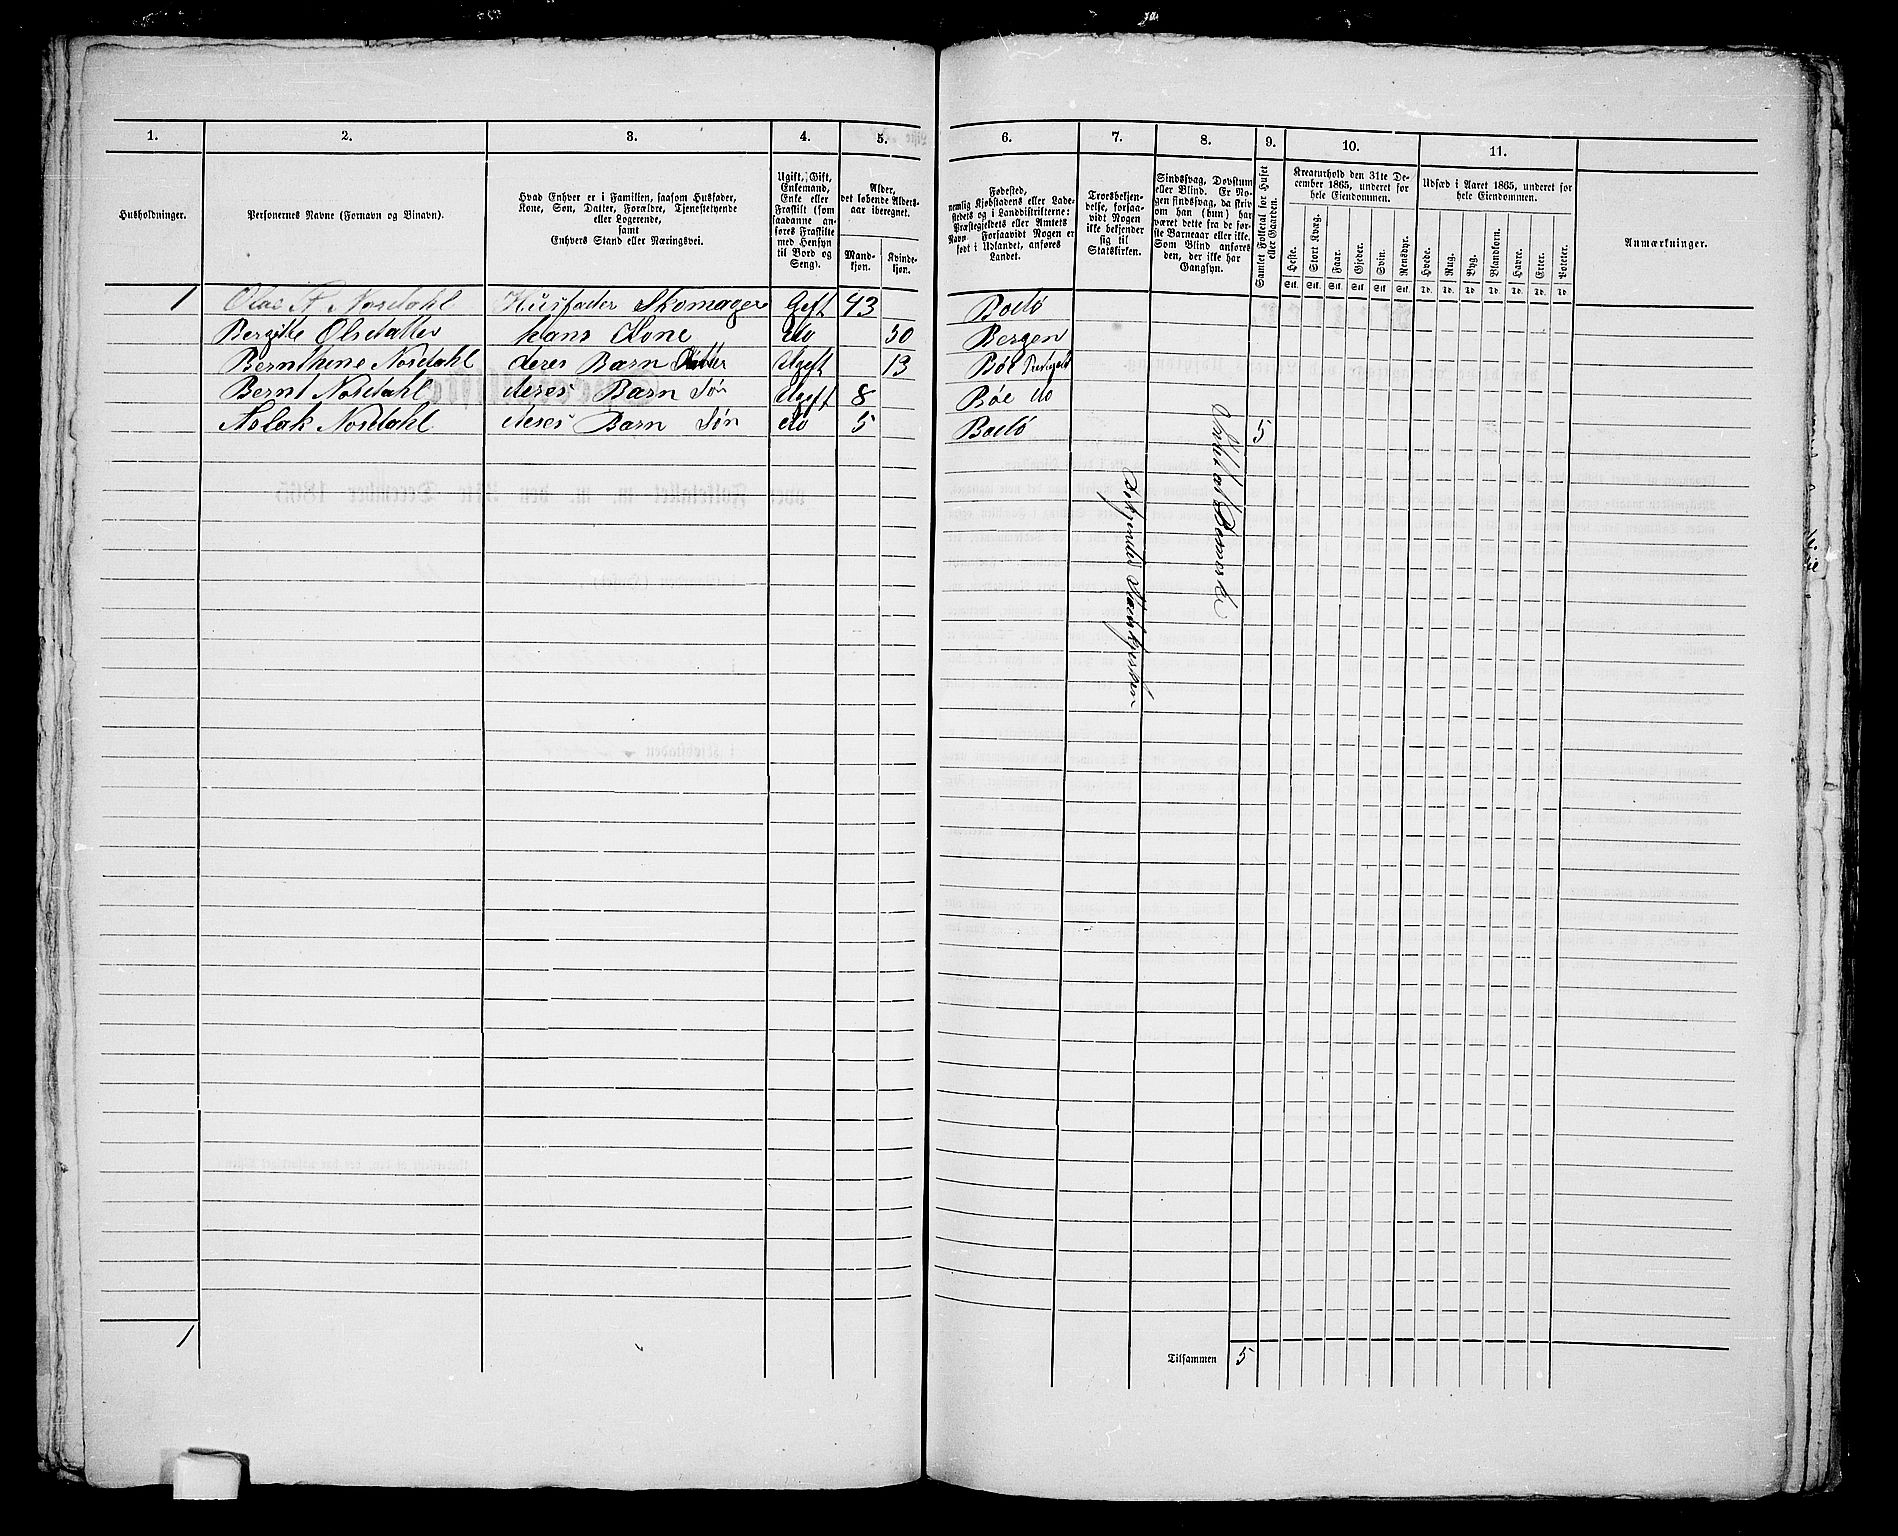 1. 2. 3. 4. 5. 6. 7. 8. 9. 10. 11.
Husholdninger.
Personernes Navne (Fornavn og Binavn).
Hvad Enhver er i Familien, saasom Husfader,
Kone, Søn, Datter, Forældre, Tjenestetyende
eller Logerende,
samt
Enhvers Stand eller Næringsvei.
Ugift, Gift,
Enkemand,
Enke eller
Fraskilt (som
saadanne an-
føres Fraskilte
med Hensyn
til Bord og
Seng).
Alder,
det løbende Alders-
aar iberegnet.
Mand-
kjøn.
Kvinde-
kjøn.
Fødested,
nemlig Kjøbstadens eller Lade-
stedets og i Landdistrikterne:
Præstegjeldets eller Amtets
Navn. Forsaavidt Nogen er
født i Udlandet, anføres
Landet.
Troesbekjen-
delse, forsaa-
vidt Nogen
ikke bekjender
sig til
Statskirken.
Sindssvag, Døvstum
eller Blind. Er No-
gen sindssvag, da skriv
om han (hun) har
været dette fra de før-
ste Barneaar eller ikke.
Som Blind anføres
den, der ikke har
Gangsyn.
Samlet Folketal for Huset
eller Gaarden.
Kreaturhold den 31te De-
cember 1865, underet for
hele Eiendommen.
Heste. Stort Kvæg. Faar. Gjeder. Svin. Rensdyr.
Stk. Stk. Stk. Stk. Stk. Stk.
Udsæd i Aaret 1865, underet for
hele Eiendommen.
Hvede. Rug. Byg. Blandkorn. Havre. Erter. Poteter.
Td. Td. Td. Td. Td. Td. Td.
Anmærkninger.
1 Nordahl Husfader Skomager Gift 43 Bodø
Bergitte Olsdatter hans Kone do 30 Bergen
Bernthine Nordahl deres Barn Ugift 13 Bøe
Bernt Nordahl deres Barn Søn Ugift 8 Bøe do
Nordahl deres Barn Søn do 5 Bodø 5
1
Tilsammen 5